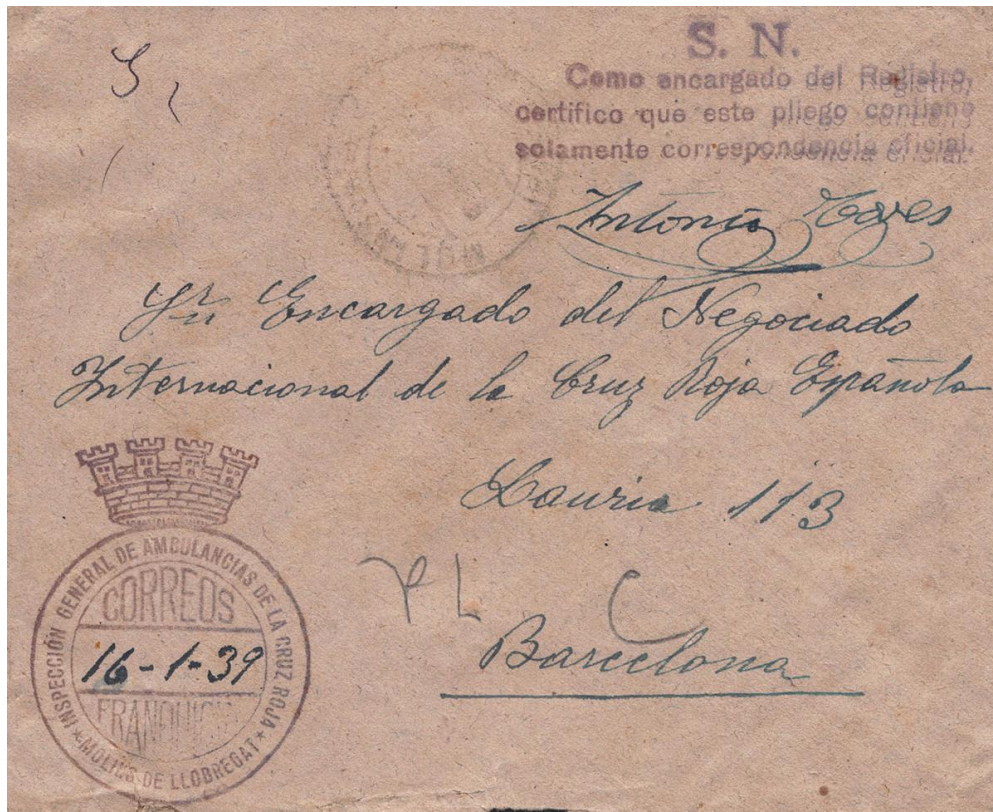 S. N.
Como encargado del Registro,
certifico que este pliego contiene
solamente correspondencia oficial.
Antonio
Sr. Encargado del Negociado
Internacional de la Cruz Roja Española
Lauria 113
PL C
Barcelona
INSPECCIÓN GENERAL DE AMBULANCIAS DE LA CRUZ ROJA
CORREOS
16-1-39
FRANQUICIA
* MOLINS DE LLOBREGAT *